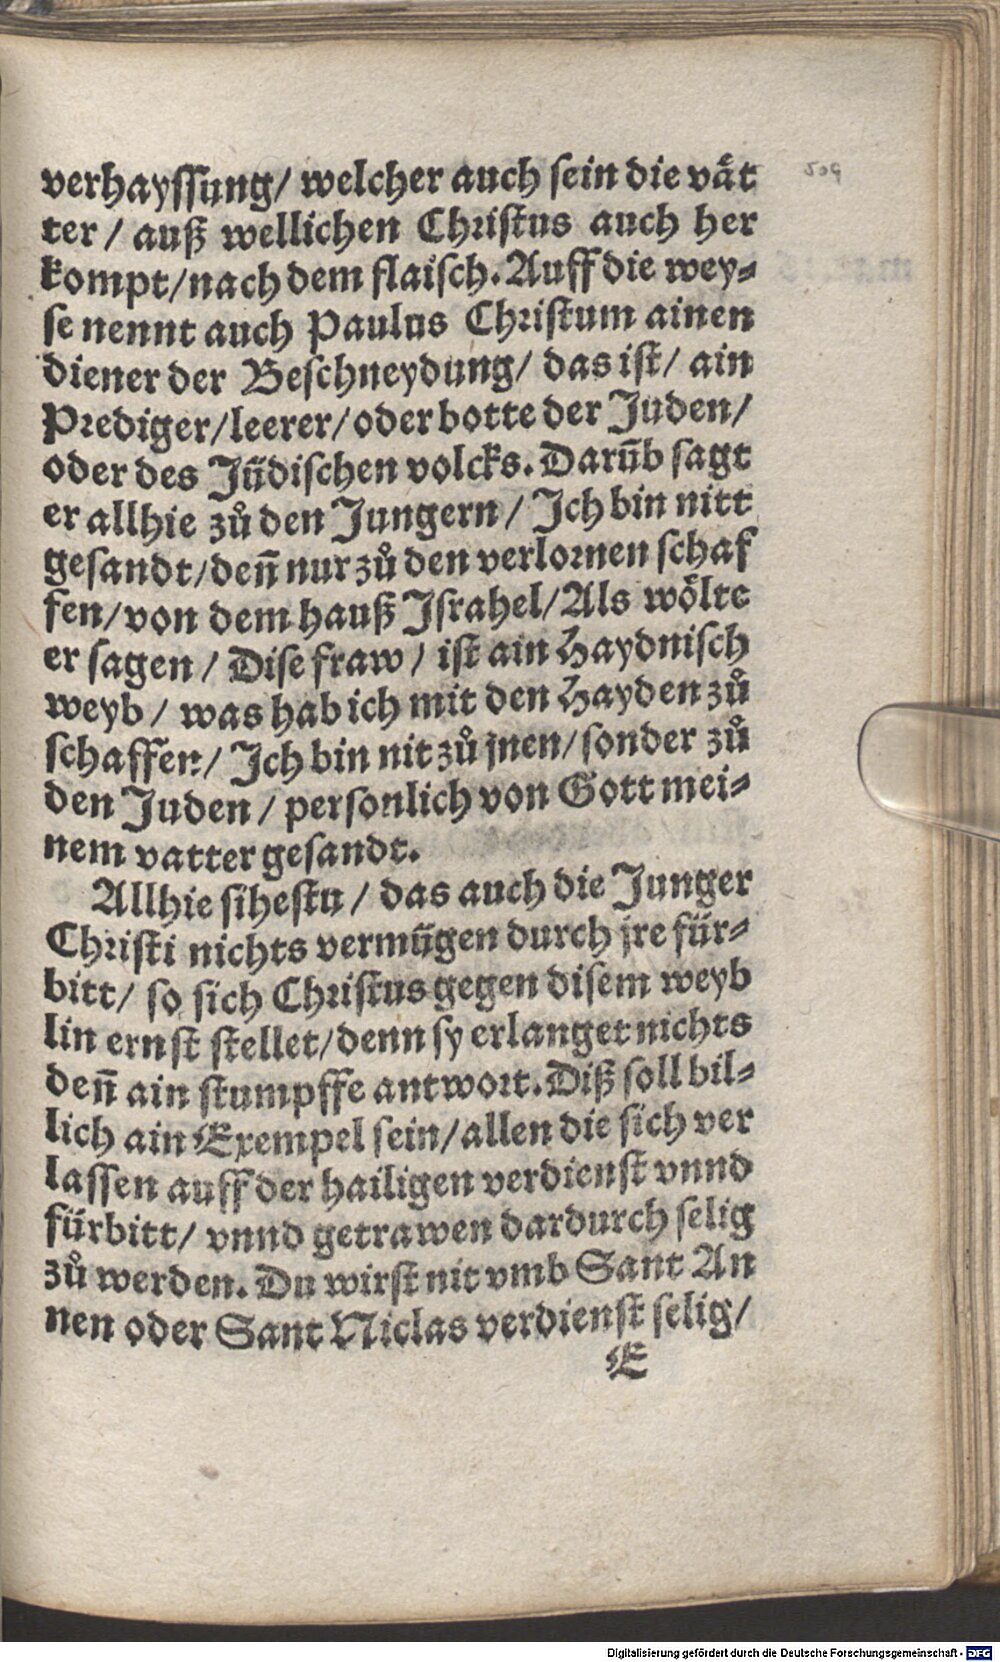 verhayſſung/ welcher auch ſein die vaͤt
ter / auß wellichen Chꝛiſtus auch her
kompt/nach dem flaiſch. Auff die wey⸗
ſe nennt auch Paulus Chꝛiſtum ainen
diener der Beſchneydung/ das iſt/ ain
Pꝛediger/leerer/oder botte der Juden/
oder des Juͤdiſchen volcks. Darūb ſagt
er allhie zů den Jungern / Ich bin nitt
geſandt/den̄ nur zů den verloꝛnen ſchaf
fen/von dem hauß Iſrahel/Als woͤlte
er ſagen / Diſe fraw / iſt ain Haydniſch
weyb / was hab ich mit den Hayden zů
ſchaffen/ Ich bin nit zů jnen/ſonder zů
den Juden / perſonlich von Gott mei⸗
nem vatter geſandt.
Allhie ſiheſtu / das auch die Junger
Chꝛiſti nichts vermuͤgen durch jre fuͤr⸗
bitt/ ſo ſich Chꝛiſtus gegen diſem weyb
lin ernſt ſtellet/denn ſy erlanget nichts
den̄ ain ſtumpffe antwoꝛt. Diß ſoll bil⸗
lich ain Exempel ſein/allen die ſich ver
laſſen auff der hailigen verdienſt vnnd
fuͤrbitt/ vnnd getrawen dardurch ſelig
zů werden. Du wirſt nit vmb Sant An
nen oder Sant Niclas verdienſt ſelig/
E
Digitalisierung gefördert durch die Deutsche Forschungsgemeinschaft - DFG